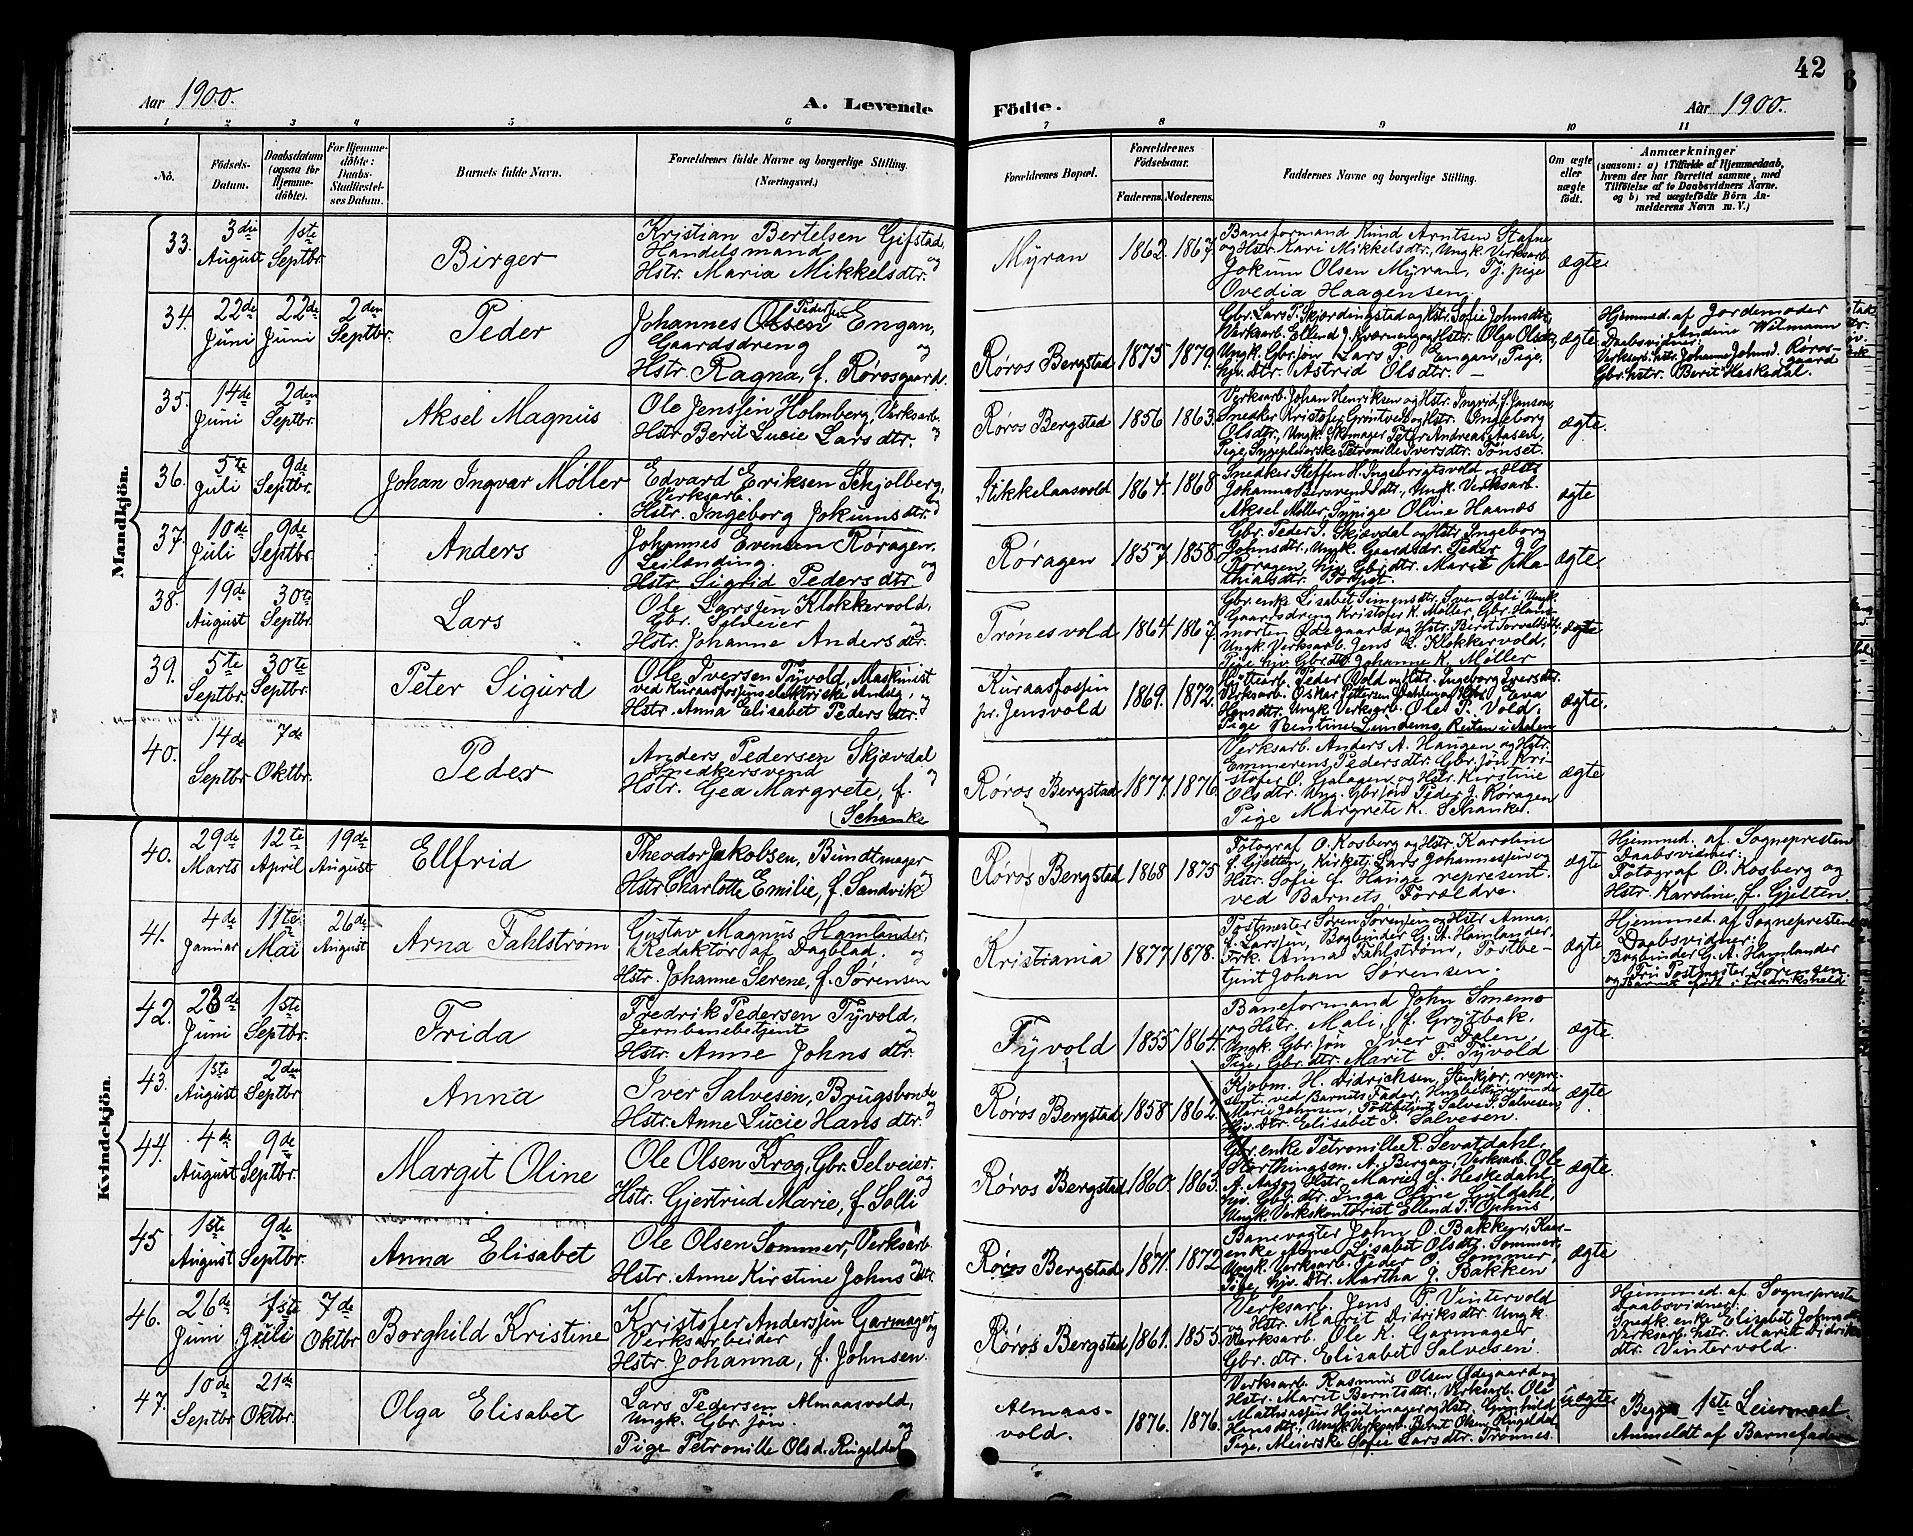 42
Aar 1900. A. Levende Födte. Aar 1900.
1 2 3 4 5 6 7 8 9 10 11
No. Födsels-Datum. Daabsdatum (ogsaa for Hjemme-döbte). For Hjemme-döbte: Daabs-Stadfæstel-ses Datum. Barnets fulde Navn. Forældrenes fulde Navne og borgerlige Stilling. (Næringsvei.) Forældrenes Bopæl. Forældrenes Födselsaar. Faderens. Moderens. Faddernes Navne og borgerlige Stilling. Om ægte eller uægte födt. Anmærkninger (saasom: a) i Tilfælde af Hjemmedaab, hvem der har forrettet samme, med Tilföielse af to Daabsvidners Navne, og b) ved uægtefödte Börn An-melderens Navn m. V.)
Mandkjön.
33. 3die August 1ste Septbr. Birger
Kristian Bertelsen Gifstad
Handelsmand og
Hstr. Maria Mikkelsdtr.
Myran 1862. 1867.
Baneformand Knud Arntsen Stafne
og Hstr. Kari Mikkelsdtr., Ungk. Verksarb.
Jokum Olsen Myran, Tj. pige
Ovedia Haagensen.
ægte.
34. 22de Juni 22de Juni 2den Septbr. Peder
Johannes Olsen Pedersen Engan,
Gaardsdreng og
Hstr. Ragna, f. Rørosgaard.
Røros Bergstad 1875 1879.
Gbr. Lars P. Skjærdingstad og Hstr. Sofie Johnsdtr.,
Verksarb. Erlend J. Kværneng og Hstr. Olga Olsdtr.
Ungk. Gbr. søn Lars P. Engan, Pige,
hjv. Dtr. Astrid Olsdtr.
ægte
Hjemmed. af Jordemoder
Andine Wilmann
Daabsvidner:
Verksarb. hstr. Johanne Johnsd. Røros-
gaard
Gbr. hstr. Berit Heskedal.
35. 14de Juni 2den Septbr. Aksel Magnus
Ole Jenssen Holmberg, Verksarb.
og
Hstr. Berit Lucie Larsdtr.
Røros Bergstad 1856 1863.
Verksarb. Johan Henriksen og Hstr. Ingrid, f. Jansen,
Snedker Kristofer Grøntvedt og Hstr. Ingeborg
Olsdtr., Ungk. Skomager Peter Andreas Aasen,
Pige, Petronille Iversdtr. Tønset.
ægte.
36. 5te Juli 9de Septbr. Johan Ingvar Møller
Edvard Eriksen Skjolberg,
Verksarb. og
Hstr. Ingeborg Jokumsdtr.
Stikkelaasvold 1864. 1868
Snedker Steffen H. Ingebrigtsvold og Hstr.
Johanna Bersvendsdtr., Ungk. Verksarb.
Aksel Møller, Sypige Oline Haanæs
ægte
37. 10de Juli 9de Septbr. Anders
Johannes Evensen Røragen,
Leilending. og
Hstr. Sigrid Pedersdtr.
Røragen 1857. 1858.
Gbr. Peder J. Skjævdal og Hstr. Ingeborg
Johnsdtr., Ungk. Gaardsdr. Peder Joh.
Røragen, hjv. Gbr. dtr. Marit Ma-
thiasdtr. Tønset.
ægte.
38. 19de August 30te Septbr. Lars
Ole Larssen Klokkervold,
Gbr. Selveier og
Hstr. Johanne Andersdtr.
Trønesvold 1864. 1867.
Gbr. enke Lisabet Simensdtr. Svendsli, Ungk.
Gaardsdreng Kristofer K. Møller, Gbr. Hans-
morten Ødegaard og Hstr. Birgit Torvaldsdtr.,
Ungk. Verksarb. Jens L. Klokkervold,
Pige hjv. Gbr. dtr. Johanne K. Møller
ægte
39. 5te Septbr. 30te Septbr. Peter Sigurd
Ole Iversen Tyvold, Maskinist
ved Kuraasfossens elektriske Anlæg, og
Hstr. Anna Elisabet Pedersdtr.
Kuraasfossen
pr. Jensvold 1869. 1872.
Hyttearb. Peder Vold og Hstr. Ingeborg Iversdtr.
Verksarb. Oskar Pettersen Dahlen og Hstr. Eva
Hansdtr., Ungk. Verksarb. Ole P. Vold.
Pige Bentine Lundeng Reitan i Aalen
ægte.
40. 14de Septbr. 7de Oktbr. Peder
Anders Pedersen Skjævdal
Snedkersvend og
Hstr. Gea Margrete, f.
Schanke
Røros Bergstad 1877. 1876.
Verksarb. Anders A. Haugen og Hstr.
Emmerens Pedersdtr. Gbr. søn Kri-
stofer O. Galagen og Hstr. Kirstine
Olsdtr. Ung. Gbr. søn Peder J. Røragen
Pige Margrete K. Schanke.
ægte
Kvindekjön.
40. 29de Marts 12te April 19de August Ellfrid
Theodor Jakobsen, Bundtmager
og
Hstr. Charlotte Emilie, f. Sandvik
Røros Bergstad 1868 1875
Fotograf O. Kosberg og Hstr. Karoline
f. Gjelten, Kirketj. Lars Johannessen og
Hstr. Sofie f. Hauge represent.
ved Barnets Forældre.
ægte
Hjemmed. af Sognepresten
Daabsvidner:
Fotograf O. Kosberg og
Hstr. Karoline, f. Gjelten.
41. 4de Januar 11te Mai 26de August Arna Fahlstrøm
Gustav Magnus Hamlander,
Redaktør af Dagblad. og
Hstr. Johanne Serene, f. Sørensen
Kristiania 1877 1878.
Postmester Søren Sørensen og Hstr. Anna,
f. Larssen, Bogbinder G. A. Hamlander
Frk. Anna Fahlstrøm, Postbe-
tjent Johan Sørensen.
ægte
Hjemmed. af Sognepresten
Daabsvidner:
Bogbinder G. A. Hamlander
og Fru Postmester Sørensen.
Barnet født i Fredrikshald
42. 23de Juni 1ste Septbr. Frida
Fredrik Pedersen Tyvold,
Jernbanebetjent og
Hstr. Anne Johnsdtr.
Tyvold 1855. 1864.
Baneformand John Smemo
og Hstr. Mali, f. Grytbak,
Ungk. Gbr. søn Iver Dalen,
Pige, Gbr. dtr. Marit F. Tyvold
ægte.
43. 1ste August 2den Septbr. Anna
Iver Salvesen, Brugsbonde
og
Hstr. Anne Lucie Hansdtr.
Røros Bergstad 1858 1862.
Kjøbm. H. Didrichsen, Stenkjær, repre-
sent. ved Barnets Fader,
Marie Johnsen, Postbetjent Salve J. Salvesen,
Hjv. Dtr. Elisabet J. Salvesen
ægte
44. 4de August 9de Septbr. Margit Oline
Ole Olsen Krog, Gbr. Selveier
og
Hstr. Gjertrud Marie, f. Solli
Røros Bergstad 1860. 1863.
Gbr. enke Petronille R. Sevatdahl,
Storthingsm. A. Bergan, Verksarb. Ole
A. Aas og Hstr. Marie J. Heskedahl,
hjv. Gbr. dtr. Inga Oline Guldahl,
Ungk. Verkskontorist Ellend P. Ophus
ægte.
45 1ste August 9de Septbr. Anna Elisabet
Ole Olsen Sommer, Verksarb.
og
Hstr. Anne Kirstine Johnsdtr.
Røros Bergstad 1871. 1872
Banevagter John O. Bakken,
enke Anne Lisabet Olsdtr. Sommer,
Ungk. Verksarb. Peder O. Sommer,
Pige, hjv. Dtr. Martha J. Bakken
ægte
46. 26de Juni 1ste Juli 7de Oktbr Borghild Kristine
Kristofer Anderssen Garmager
Verksarbeider og
Hstr. Johanna, f. Johnsen.
Røros Bergstad 1861. 1855.
Verksarb. Jens P. Vintervold
og Hstr. Marit Didriksdtr. Ungk.
Verksarb. Ole K. Garmager,
Gbr. dtr. Elisabet Salvesen.
ægte
Hjemmed. af Sognepresten
Daabsvidner:
Snedk. enke Elisabet Johnsdtr.
Verksarb. hstr. Marit Didriks
dtr. Vintervold.
47. 10de Septbr. 21de Oktbr. Olga Elisabet
Lars Pedersen Almaasvold,
Ungk. Gbr. søn. og
Pige Petronille Olsd. Rugeldal
Almaas-
vold. 1876. 1876.
Verksarb. Rasmus Olsen Ødegaard og
Hstr. Marit Berntsdtr., Verksarb. Ole
Mathiassen Heilmager og Hstr. Gunhild
Hansdtr., Ungk. Verksarb. Bernt Olsen Rugeldal
Pige, Meierske Sofie Larsdtr. Trønnes.
uægte
Begges 1ste Leiermaal.
Anmeldt af Barnefaderen